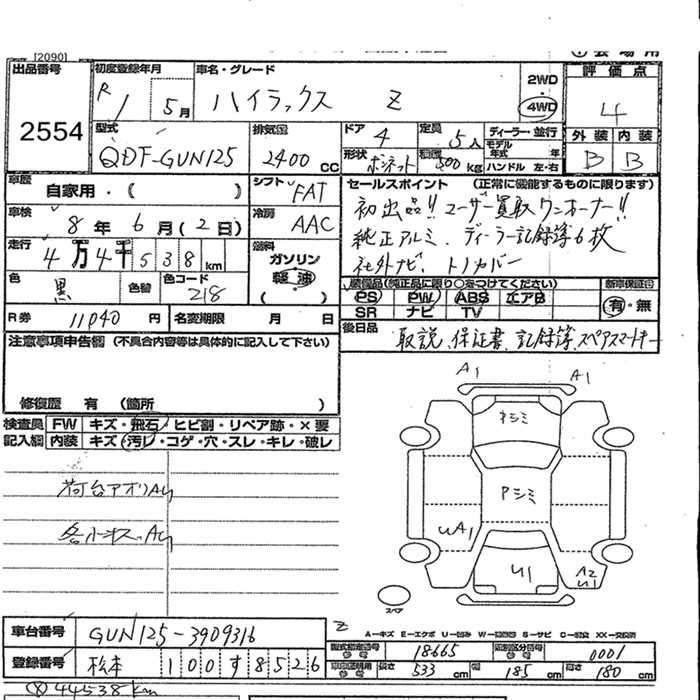 [2090]
出品番号
2554
初度登録年月
R 1 5月
車名・グレード
ハイラックス Z
2WD
・
4WD
評価点
4
外装 内装
B B
型式
QDF-GUN125
排気量
2400 cc
ドア 4
定員 5人
ディーラー・並行
モデル年式 年
形状 ボンネット
積載 500 kg
ハンドル 左・右
車歴
自家用・( )
シフト FAT
車検
8年 6月(2日)
冷房 AAC
走行
4万4千538km
燃料
ガソリン
軽油
( )
色 黒
色替
色コード 218
R券 11040 円
名変期限 月 日
セールスポイント (正常に機能するものに限ります)
初出品!! ユーザー買取ワンオーナー!!
純正アルミ、ディーラー記録簿6枚
社外ナビ、トノカバー
装備品(純正品に限り○をつけてください)
PS PW ABS エアB
SR ナビ TV
新車保証書
有・無
後日品
取説、保証書、記録簿、スペアスマートキー
注意事項申告欄(不具合内容等は具体的に記入して下さい)
修復歴 有 (箇所 )
検査員記入欄
FW キズ・飛石・ヒビ割・リペア跡・×要
内装 キズ・汚レ・コゲ・穴・スレ・キレ・破レ
荷台アオリAU
各小キズ、AU
A1
A1
Pシミ
UA1
U1
A2
U1
スペア
車台番号 GUN125-3909316
登録番号 松本 100す8526
Z
A-キズ E-エクボ U-凹み W-補修跡 S-サビ C-腐食 XX-交換済
型式指定番号 18665
類別区分番号 0001
長さ 533 cm
幅 185 cm
高さ 180 cm
44538km